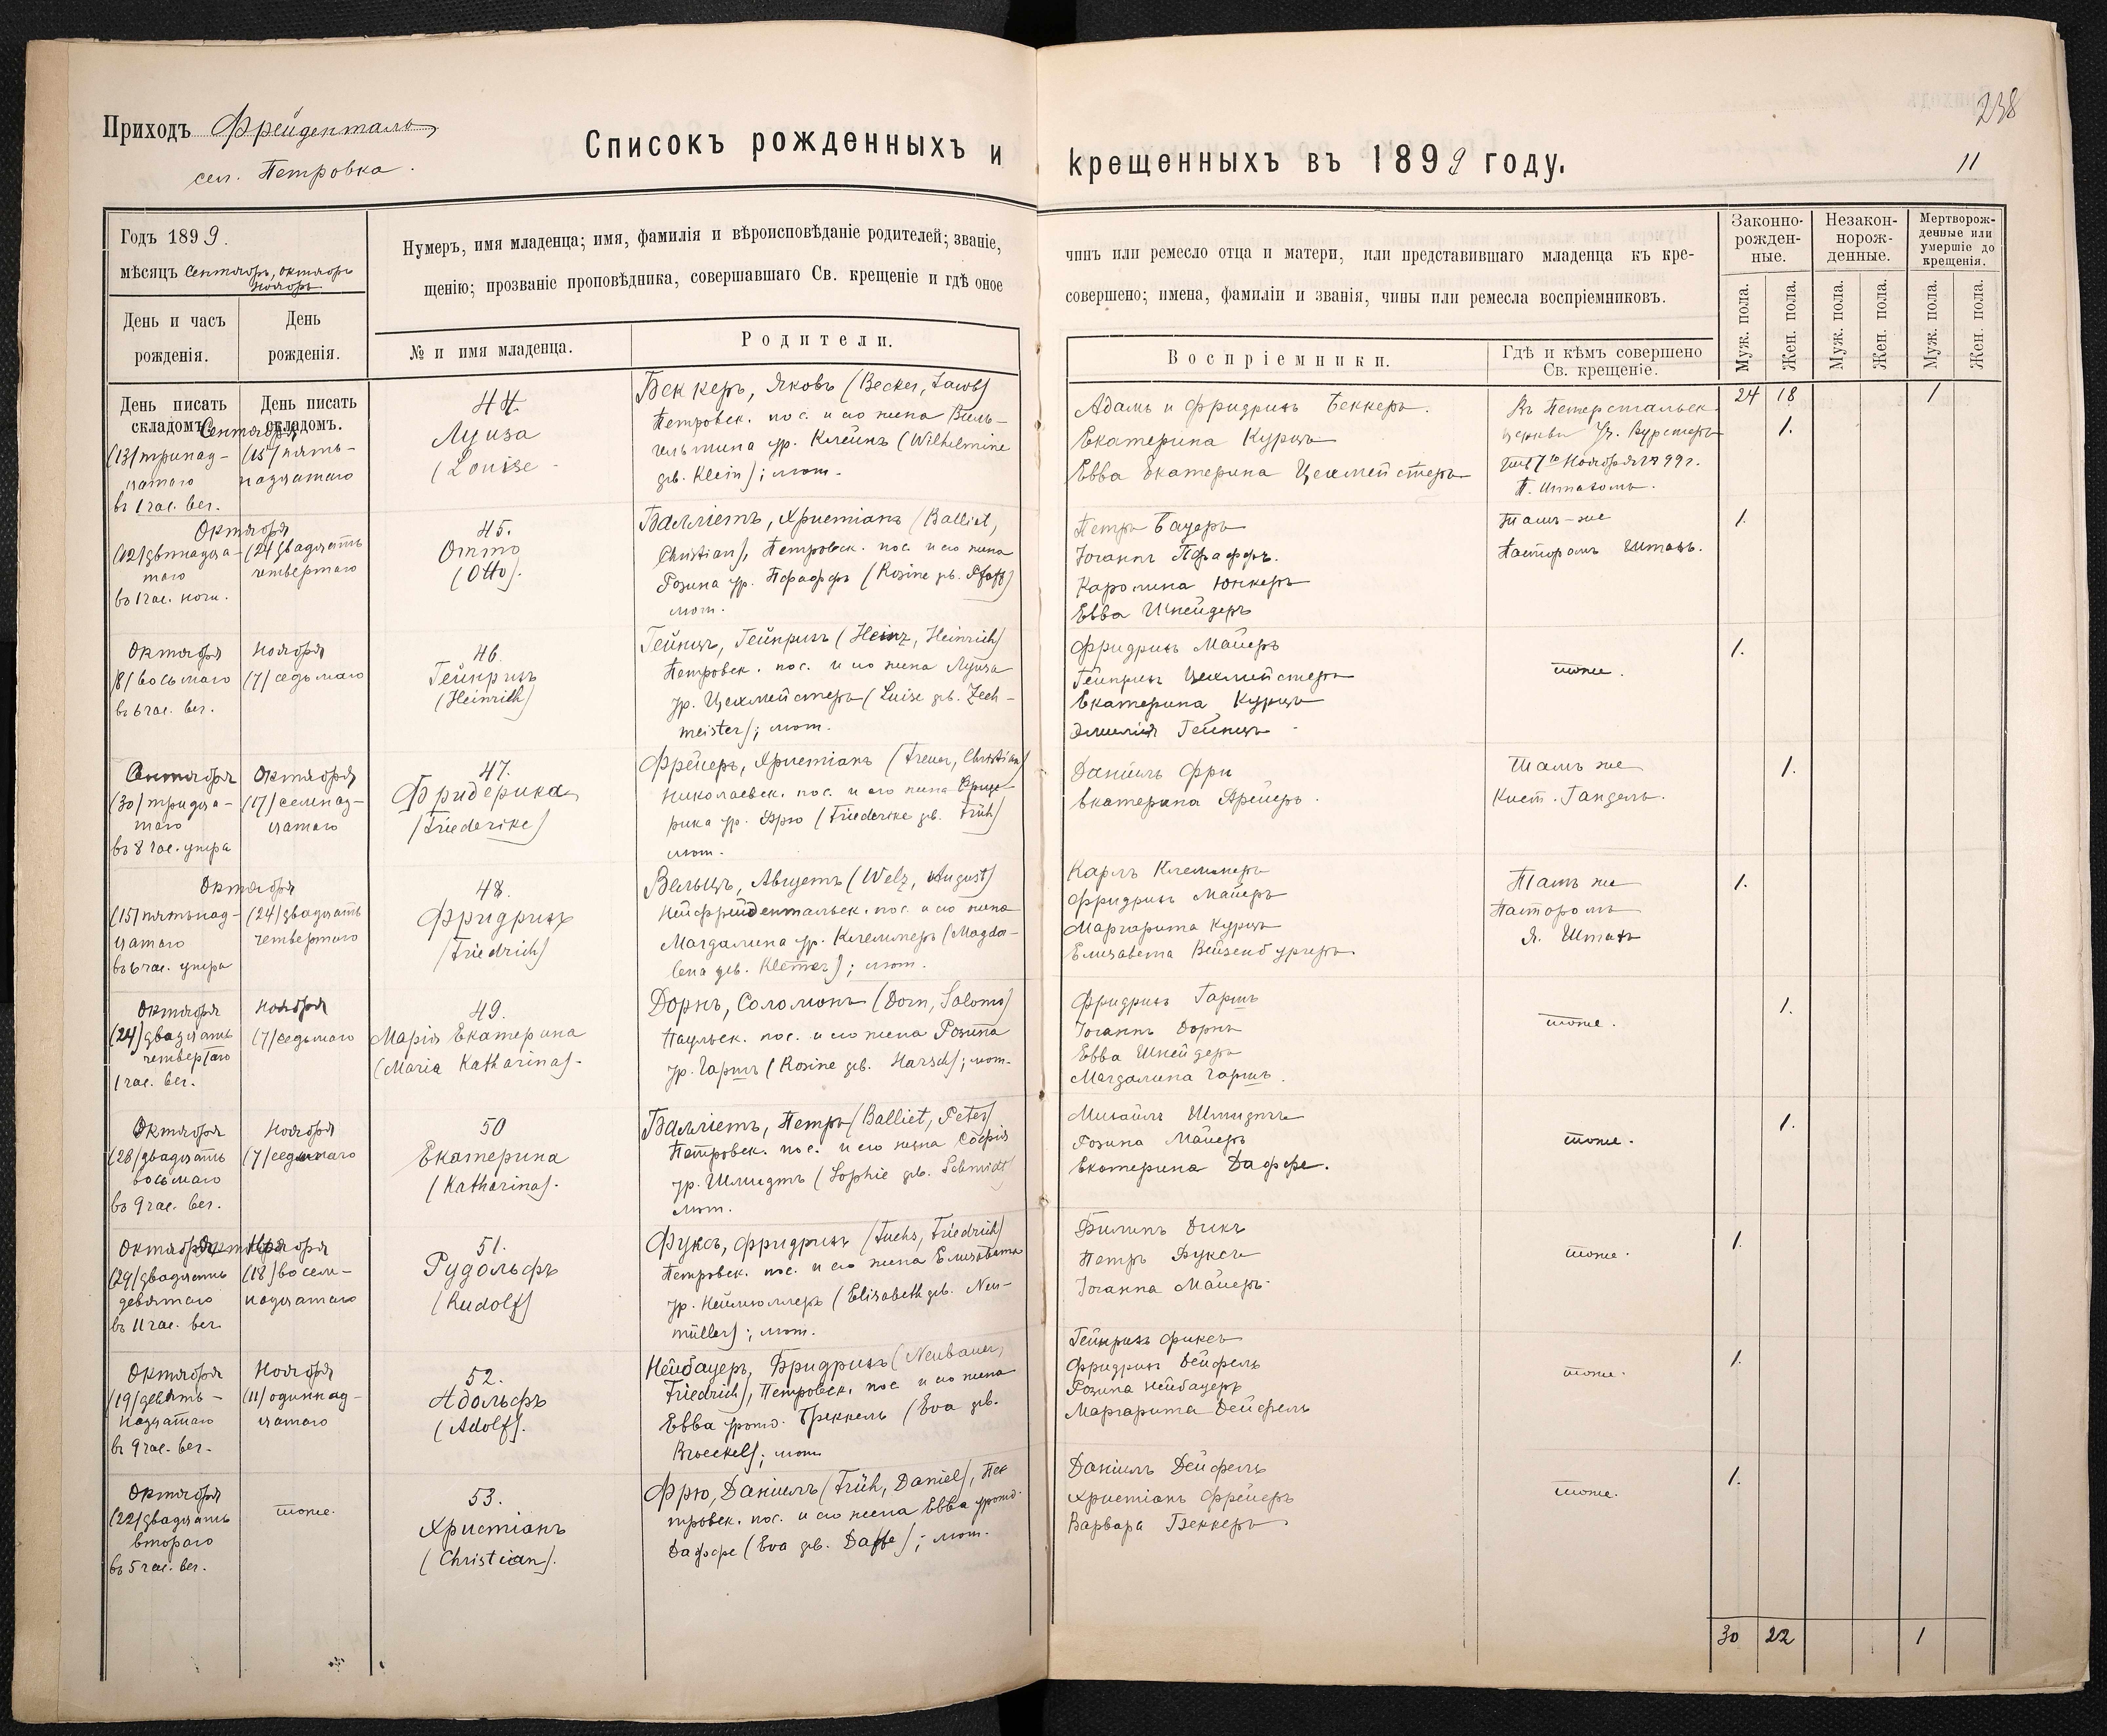 Приходъ Фрейденталь,
сел. Петровка.
Списокъ рожденныхъ и крещенныхъ въ 1899 году.
238
11
Годъ 1899.
мѣсяцъ Сентябрь, октябрь
ноябрь.
День и часъ
рожденія.
День
рожденія.
Нумеръ, имя младенца; имя, фамилія и вѣроисповѣданіе родителей; званіе,
щенію; прозваніе проповѣдника, совершавшаго Св. крещеніе и гдѣ оное
№ и имя младенца.
Родители.
чинъ или ремесло отца и матери, или представившаго младенца къ кре-
совершено; имена, фамиліи и званія, чины или ремесла воспріемниковъ.
Воспріемники.
Гдѣ и кѣмъ совершено
Св. крещеніе.
Законно-
рожден-
ные.
Незакон-
норож-
денные.
Мертворож-
денные или
умершіе до
крещенія.
Муж. пола.
Жен. пола.
Муж. пола.
Жен. пола.
Муж. пола.
Жен. пола.
День писать
складомъ.
День писать
складомъ.
24 18 1
Сентября
(13) тринад-
цатаго
въ 1 час. веч.
(15) пять-
надцатаго
44.
Луиза
(Louise
Беккеръ, Яковъ (Becker, Jacob)
Петровск. пос. и его жена Виль-
гельмина ур. Клейнъ (Wilhelmine
дв. Klein); лют.
Адамъ и Фридрихъ Беккеръ.
Екатерина Курцъ
Евва Екатерина Цехмейстеръ
Въ Петерстальск.
церкви
Ноября 1899 г.
П. Штахомъ.
1.
Октября
(12) двѣнадца-
таго
въ 1 час. ночи.
(24) двадцать
четвертаго
45.
Отто
(Otto).
Балліетъ, Христіанъ (Balliet,
Christian), Петровск. пос. и его жена
Розина ур. Пфаффъ (Rosine дв. Pfaff)
лют.
Петръ Бауеръ
Іоганнъ Пфаффъ.
Каролина Юнкеръ
Евва Шнейдеръ
Тамъ-же
Пасторомъ Штахъ.
1.
Октября
(8) восьмаго
въ 6 час. веч.
Ноября
(7) седьмаго
46.
Гейнрихъ
(Heinrich)
Гейнцъ, Гейнрихъ (Heinz, Heinrich)
Петровск. пос. и его жена Луиза
ур. Цехмейстеръ (Luise дв. Zech-
meister); лют.
Фридрихъ Майеръ
Гейнрихъ Цехмейстеръ
Екатерина Курцъ
Эмилія Гейнцъ
тоже.
1.
Сентября
(30) тридца-
таго
въ 8 час. утра
Октября
(17) семнад-
цатаго
47.
Фридерика
(Friederike)
Фрейеръ, Христіанъ (Freuer, Christian)
Николаевск. пос. и его жена Фриде-
рика ур. Фрю (Friederike дв. Früh)
лют.
Даніилъ Фри
Екатерина Фрейеръ.
Тамъ же
Кист. Гандель.
1.
Октября
(15) пятьнад-
цатаго
въ 6 час. утра
(24) двадцать
четвертаго
48.
Фридрихъ
(Friedrich)
Вельцъ, Августъ (Welz, August)
Нейфрейдентальск. пос. и его жена
Магдалина ур. Клеммеръ (Magda-
lena дв. Klemer); лют.
Карлъ Клеммеръ
Фридрихъ Майеръ
Маргарита Курцъ
Елизавета Вейзенбургеръ
Тамъ же
Пасторомъ
Я. Штахъ
1.
Октября
(24) двадцать
четвертаго
1 час. веч.
Ноября
(7) седьмаго
49.
Марія Екатерина
(Maria Katharina).
Дорнъ, Соломонъ (Dorn, Salomo)
Паульск. пос. и его жена Розина
ур. Гаршъ (Rosine дв. Harsch); лют.
Фридрихъ Гаршъ
Іоганнъ Дорнъ
Евва Шнейдеръ
Магдалина Гаршъ.
тоже.
1.
Октября
(28) двадцать
восьмаго
въ 9 час. веч.
Ноября
(7) седьмаго
50
Екатерина
(Katharina).
Балліетъ, Петръ (Balliet, Peter)
Петровск. пос. и его жена Софія
ур. Шмидтъ (Sophie дв. Schmidt)
лют.
Михаилъ Шмидтъ
Розина Майеръ
Екатерина Даффе.
тоже.
1.
Октября
(29) двадцать
девятаго
въ 11 час. веч.
Ноября
(18) восем-
надцатаго
51.
Рудольфъ
(Rudolf)
Фуксъ, Фридрихъ (Fuchs, Friedrich)
Петровск. пос. и его жена Елизавета
ур. Неймюллеръ (Elisabeth дв. Neu-
müller); лют.
Филипъ Дикъ
Петръ Фуксъ
Іоганна Майеръ
тоже.
1.
Октября
(19) девять-
надцатаго
въ 9 час. веч.
Ноября
(11) одиннад-
цатаго
52.
Адольфъ
(Adolf).
Нейбауеръ, Фридрихъ (Neubauer,
Friedrich), Петровск. пос. и его жена
Евва урожд. Бреккель (Eva дв.
Broeckel); лют.
Гейнрихъ Фуксъ
Фридрихъ Дейфель
Розина Нейбауеръ
Маргарита Дейфель
тоже.
1.
Октября
(22) двадцать
втораго
въ 5 час. веч.
тоже.
53.
Христіанъ
(Christian).
Фрю, Даніилъ (Früh, Daniel), Пет
тровск. пос. и его жена Евва урожд.
Даффе (Eva дв. Daffe); лют.
Даніилъ Дейфель
Христіанъ Фрейеръ
Варвара Беккеръ
тоже.
1.
30 22 1